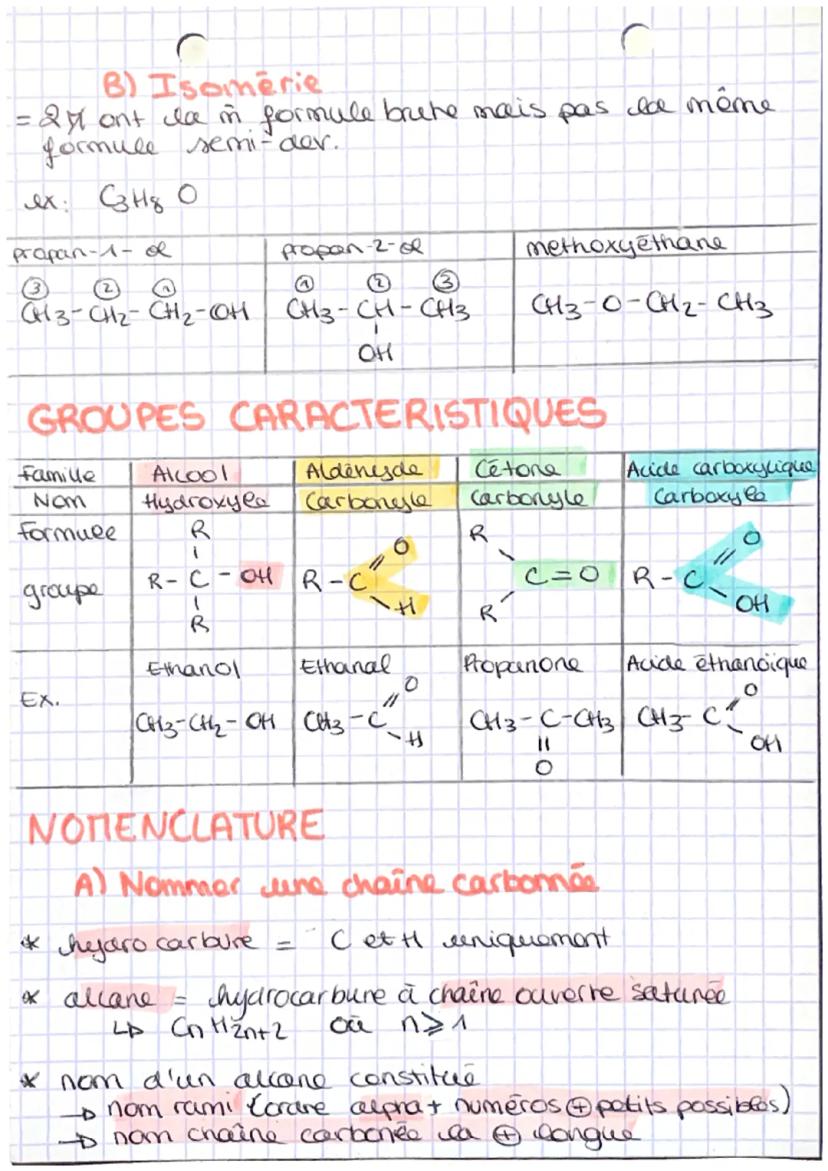 B) Isomérie
= 2 M ont la m̂ formule brute mais pas la même
formule semi-dev.
ex: C3H8 O
propan-1-ol propan-2-ol methoxyéthane
③ ② ① ① ② ③
CH3-CH2-CH2-OH CH3-CH-CH3 CH3-O-CH2-CH3
OH
GROUPES CARACTERISTIQUES
Famille Alcool Aldéhyde Cétone Acide carboxylique
Nom Hydroxyle Carbonyle Carbonyle Carboxyle
Formule R R O
O
groupe R-C-OH R-C C=O R-C
H OH
R R
Ethanol Ethanal Propanone Acide éthanoïque
Ex. O O
CH3-CH2-OH CH3-C CH3-C-CH3 CH3-C
H || OH
O
NOMENCLATURE
A) Nommer une chaîne carbonnée
* hydrocarbure = C et H uniquement
* alcane = hydrocarbure à chaîne ouverte saturée
↳ CnH2n+2 où n≥1
* nom d'un alcane constitué
→ nom rami (ordre alpha + numéros ⊕ petits possibles)
→ nom chaîne carbonée la ⊕ longue